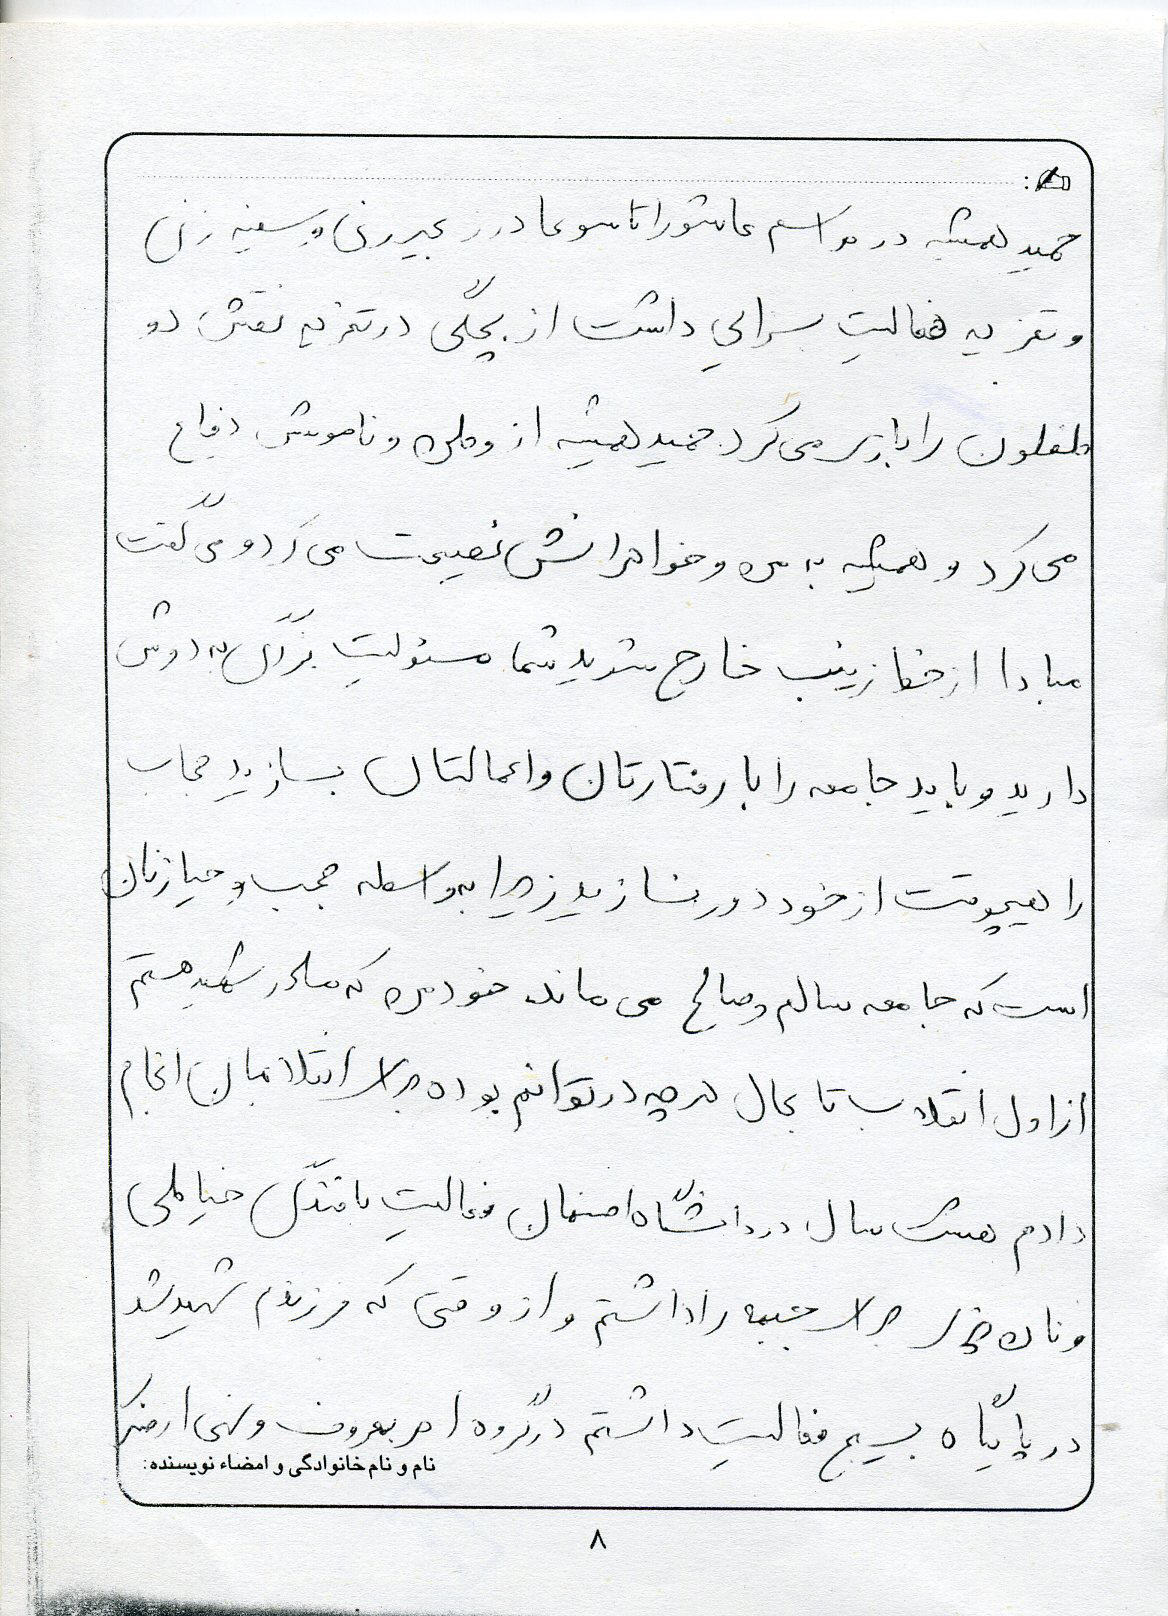 حمید همیشه در مواسم عاشورا تاسوعا در زنجیرزنی و سینه زنی
و تعزیه فعالیت بسزایی داشت از بچگی در تعزیه نقش دو
طفلون را بازی می کرد حمید همیشه از وطن و ناموسش دفاع
می کرد و همیشه به من و خواهرانش نصیحت می کرد و می گفت
مبادا از خط زینب خارج شوید شما مسئولیت بزرگی به دوش
دارید و باید جامعه را با رفتارتان و اعمالتان بسازید حجاب
را هیچوقت از خود دور نسازید زیرا به واسطه حجب و حیا زنان
است که جامعه سالم و صالح می ماند خود من که مادر شهید هستم
از اول انقلاب تا بحال هر چه در توانم بوده برای انقلابمان انجام
دادم هشت سال در دانشگاه اصفهان فعالیت بافندگی خیاطی
و نان پزی برای جبهه را داشتم و از وقتی که فرزندم شهید شد
در پایگاه بسیج فعالیت داشتم در گروه امر بمعروف و نهی ازمنکر
نام و نام خانوادگی و امضاء نویسنده:
۸